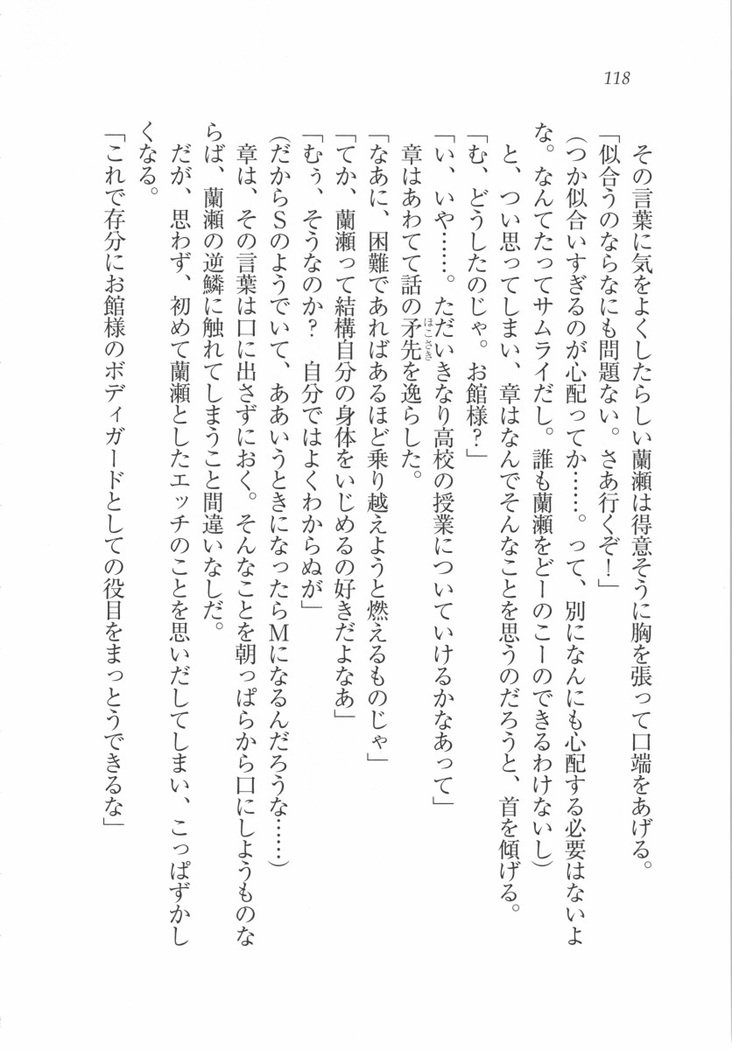 118
その言葉に気をよくしたらしい蘭瀬は得意そうに胸を張って口端をあげる。
「似合うのならなにも問題ない。さあ行くぞ！」
（つか似合いすぎるのが心配ってか……。って、別になんにも心配する必要はないよ
な。なんてたってサムライだし。誰も蘭瀬をどーのこーのできるわけないし）
と、つい思ってしまい、章はなんでそんなことを思うのだろうと、首を傾げる。
「む、どうしたのじゃ。お館様？」
「い、いや……。ただいきなり高校の授業についていけるかなあって」
章はあわてて話の矛先を逸らした。
ほこさき
「なあに、困難であればあるほど乗り越えようと燃えるものじゃ」
「てか、蘭瀬って結構自分の身体をいじめるの好きだよなあ」
「むぅ、そうなのか？　自分ではよくわからぬが」
（だからＳのようでいて、ああいうときになったらＭになるんだろうな……）
章は、その言葉は口に出さずにおく。そんなことを朝っぱらから口にしようものな
らば、蘭瀬の逆鱗に触れてしまうこと間違いなしだ。
だが、思わず、初めて蘭瀬としたエッチのことを思いだしてしまい、こっぱずかし
くなる。
「これで存分にお館様のボディガードとしての役目をまっとうできるな」